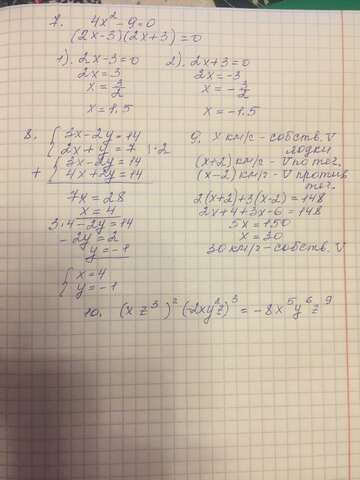 7. 4x² - 9 = 0
(2x-3)(2x+3) = 0
1). 2x-3=0
2x = 3
x = 3/2
x = 1.5
2). 2x+3=0
2x = -3
x = -3/2
x = -1.5
8. { 3x-2y = 14
2x+y = 7 | ·2
+ { 3x-2y = 14
4x+2y = 14
7x = 28
x = 4
3·4-2y=14
-2y = 2
y = -1
{ x = 4
y = -1
9. x км/г - собств. V
лодки
(x+2) км/г - V по теч.
(x-2) км/г - V против
теч.
2(x+2)+3(x-2) = 148
2x+4+3x-6 = 148
5x = 150
x = 30
30 км/г - собств. V
10. (x z³)² (-2xy²z)³ = -8x⁵y⁶z⁹